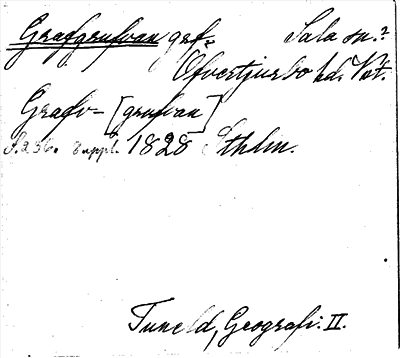 Grafgrufvan grf. Sala sn.?
Öfvertjurbo hd. Väst.
Grafv-[grufvan]
S. 256. Suppl. 1828 Sthlm.
Tuneld, Geografi. II.